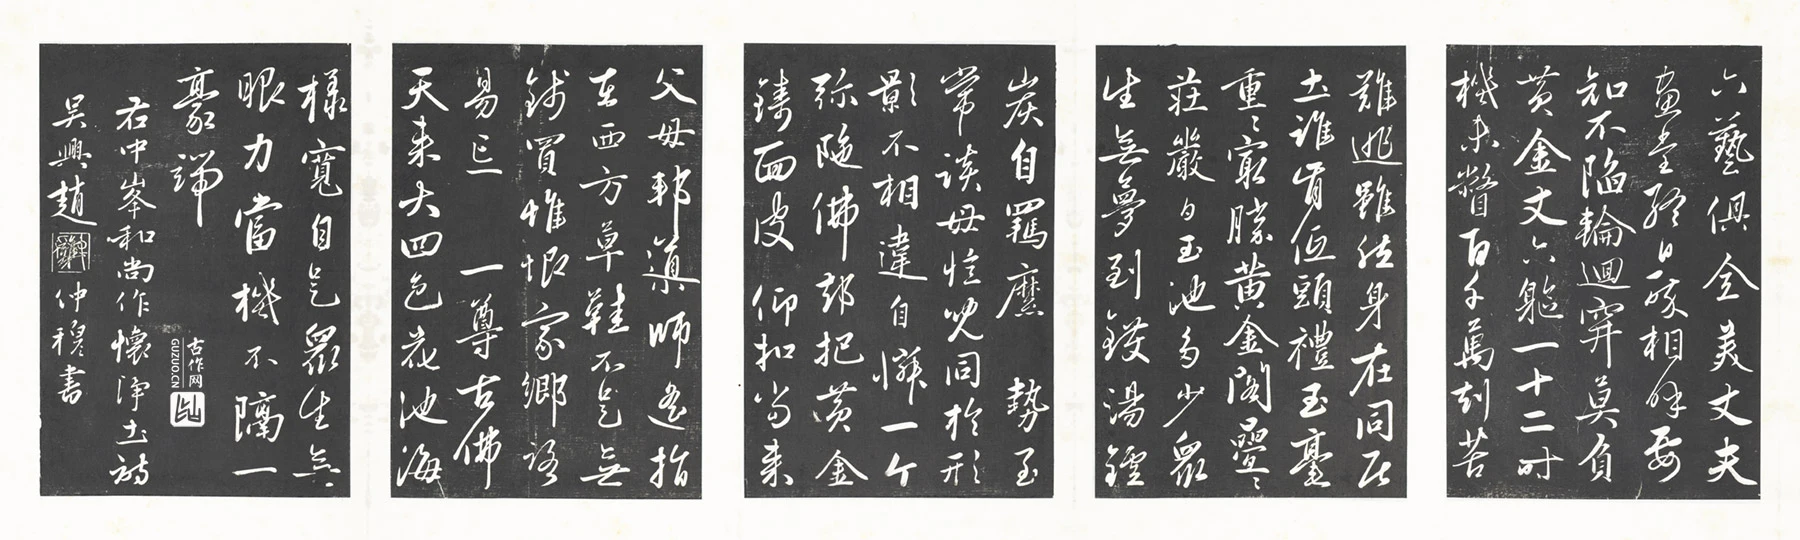 六藝俱全美丈夫
畫堂終日咲相呼要
知不陷輪迴穽莫負
黃金丈六軀一十二時
機未瞥百千萬刻苦
難逃雖然身在同居
土誰肯低頭禮玉毫
重〻冣勝黃金閣疊〻
莊嚴白玉池多少眾
生無夢到鑊湯鑪
炭自羈縻 勢至
常談母憶兒同於形
影不相違自憐一个
彌陁佛卻把黃金
鑄面皮仰扣當來
父母邦導師遙指
在西方草鞋不是無
錢買惟恨家鄉路
易忘 一尊古佛
天來大四色花池海
樣寬自是眾生無
眼力當機不隔一
豪端
右中峯和尚作懷淨土詩
吳興趙雍仲穆書
古作网
GUZUO.CN